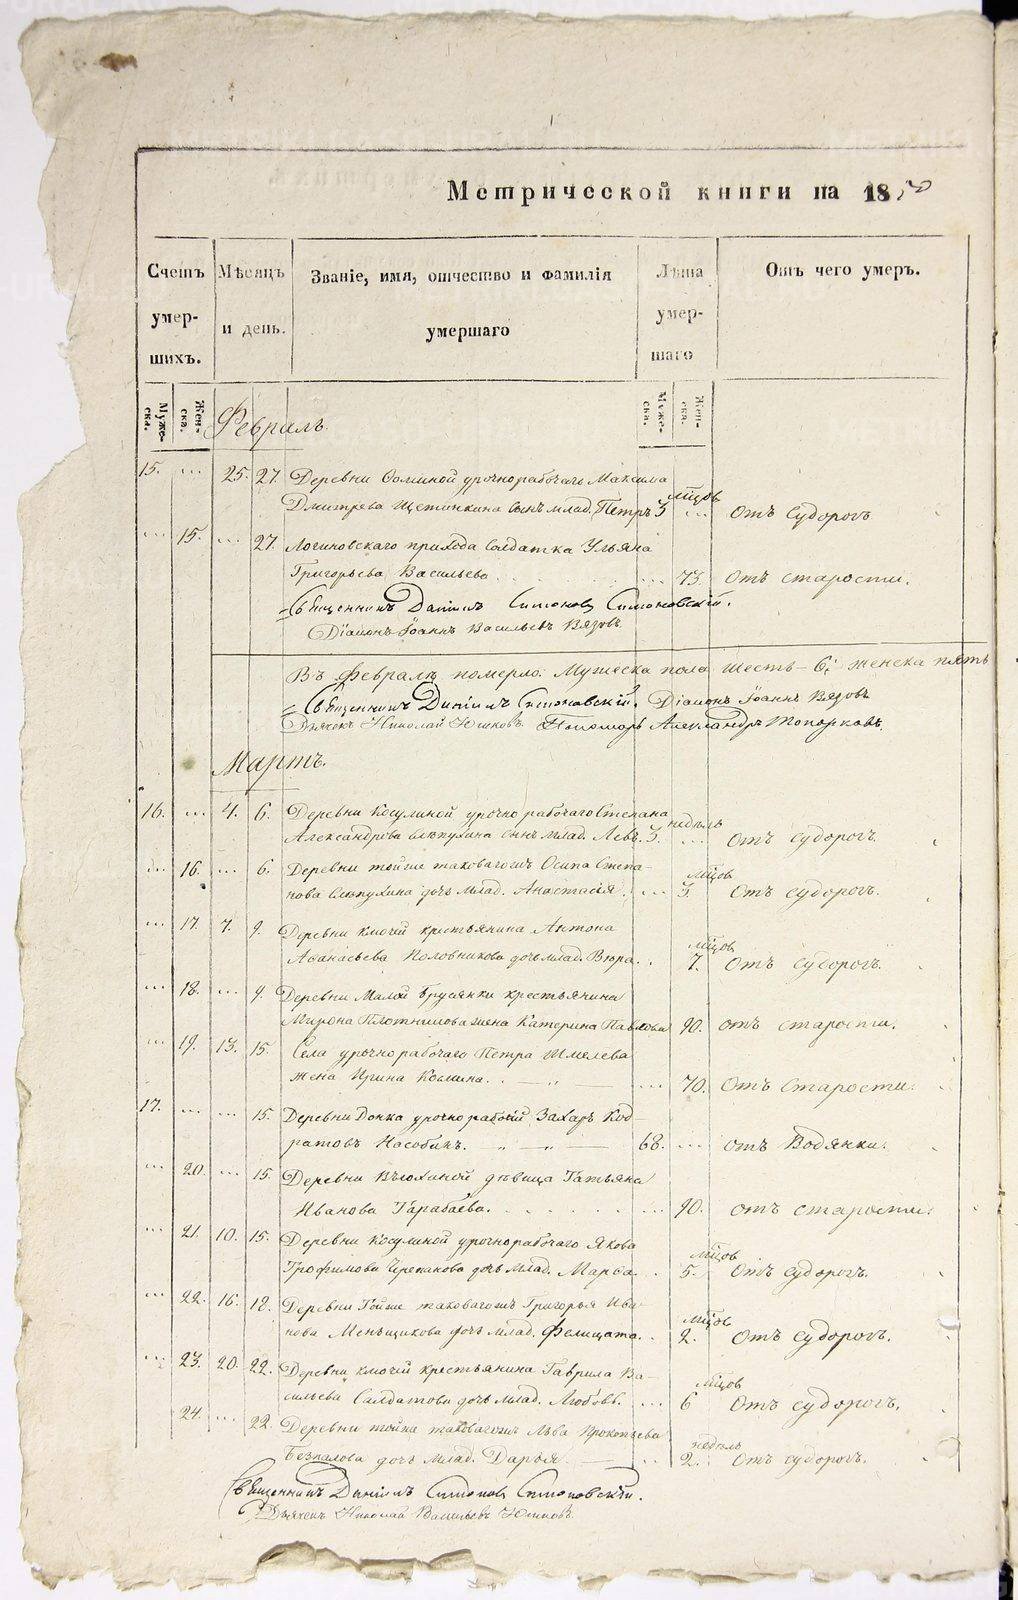 Метрической книги на 1850
Счетъ умер- шихъ.
Мѣсяцъ и день.
Званіе, имя, отчество и фамилія умершаго
Лѣта умер- шаго
Отъ чего умеръ.
Муже- ска.
Жен- ска.
Муже- ска.
Жен- ска.
Февраль.
15. ... 25. 27. Деревни Ѳоминой урочнорабочаго Максима
Дмитрева Щетинкина сынъ млад. Петръ 3 мѣсцов ... Отъ судорогъ
... 15. ... 27. Логиновскаго прихода солдатка Ульяна
Григорьева Васильева ... 73. Отъ старости.
Священникъ Даніилъ Симонов Симоновскій.
Діаконъ Іоаннъ Васильевъ Вязовъ
Въ Февралѣ померло: Мужеска пола шесть – 6; женска пять
Священникъ Даніилъ Симоновскій. Діаконъ Іоаннъ Вязовъ
Дьячекъ Николай Юшковъ. Пономарь Александръ Топорковъ.
Мартъ.
16. ... 4. 6. Деревни Косулиной урочно рабочаго Степана
Александрова Слѣпухина сынъ млад. Левъ. 3. недѣль ... Отъ судорогъ.
... 16. ... 6. Деревни тойже таковагожъ Осипа Степа-
нова Слѣпухина дочь млад. Анастасія. ... 3. мѣсцов Отъ судорогъ.
... 17. 7. 9. Деревни ключей крестьянина Антона
Аѳанасьева Половникова дочь млад. 7. мѣсцов Отъ судорогъ.
... 18. ... 9. Деревни Малой Брусянки крестьянина
Мирона Плотникова жена Катерина Павлова 90. отъ старости.
... 19. 13. 15. Села урочнорабочаго Петра Шмелева
жена Ирина Козмина. ... 70. Отъ Старости.
17. ... ... 15. Деревни Донка урочнорабочій Захаръ Код-
ратовъ 68. ... отъ Водянки.
... 20. ... 15. Деревни дѣвица Татьяна
Иванова Тарабаева. ... 90. отъ старости.
... 21. 10. 15. Деревни Косулиной урочнорабочаго Якова
Трофимова Черепанова дочь млад. Марѳа. 5. мѣсцов Отъ судорогъ.
... 22. 16. 18. Деревни Тойже таковагожъ Григорья Ива-
нова Меньщикова дочь млад. Фелицата. 2. мѣсцов Отъ судорогъ.
... 23. 20. 22. Деревни ключей крестьянина Гаврила Ва-
сильева Салдатова дочь млад. Любовь. ... 6 мѣсцов Отъ судорогъ.
24. ... 22. Деревни тойже таковагожъ Льва Прокопьева
Безпалова дочь млад. Дарья. ... 2. недѣль Отъ судорогъ.
Священникъ Даніилъ Симонов Симоновскій.
Дьячекъ Николай Васильевъ Юшковъ.